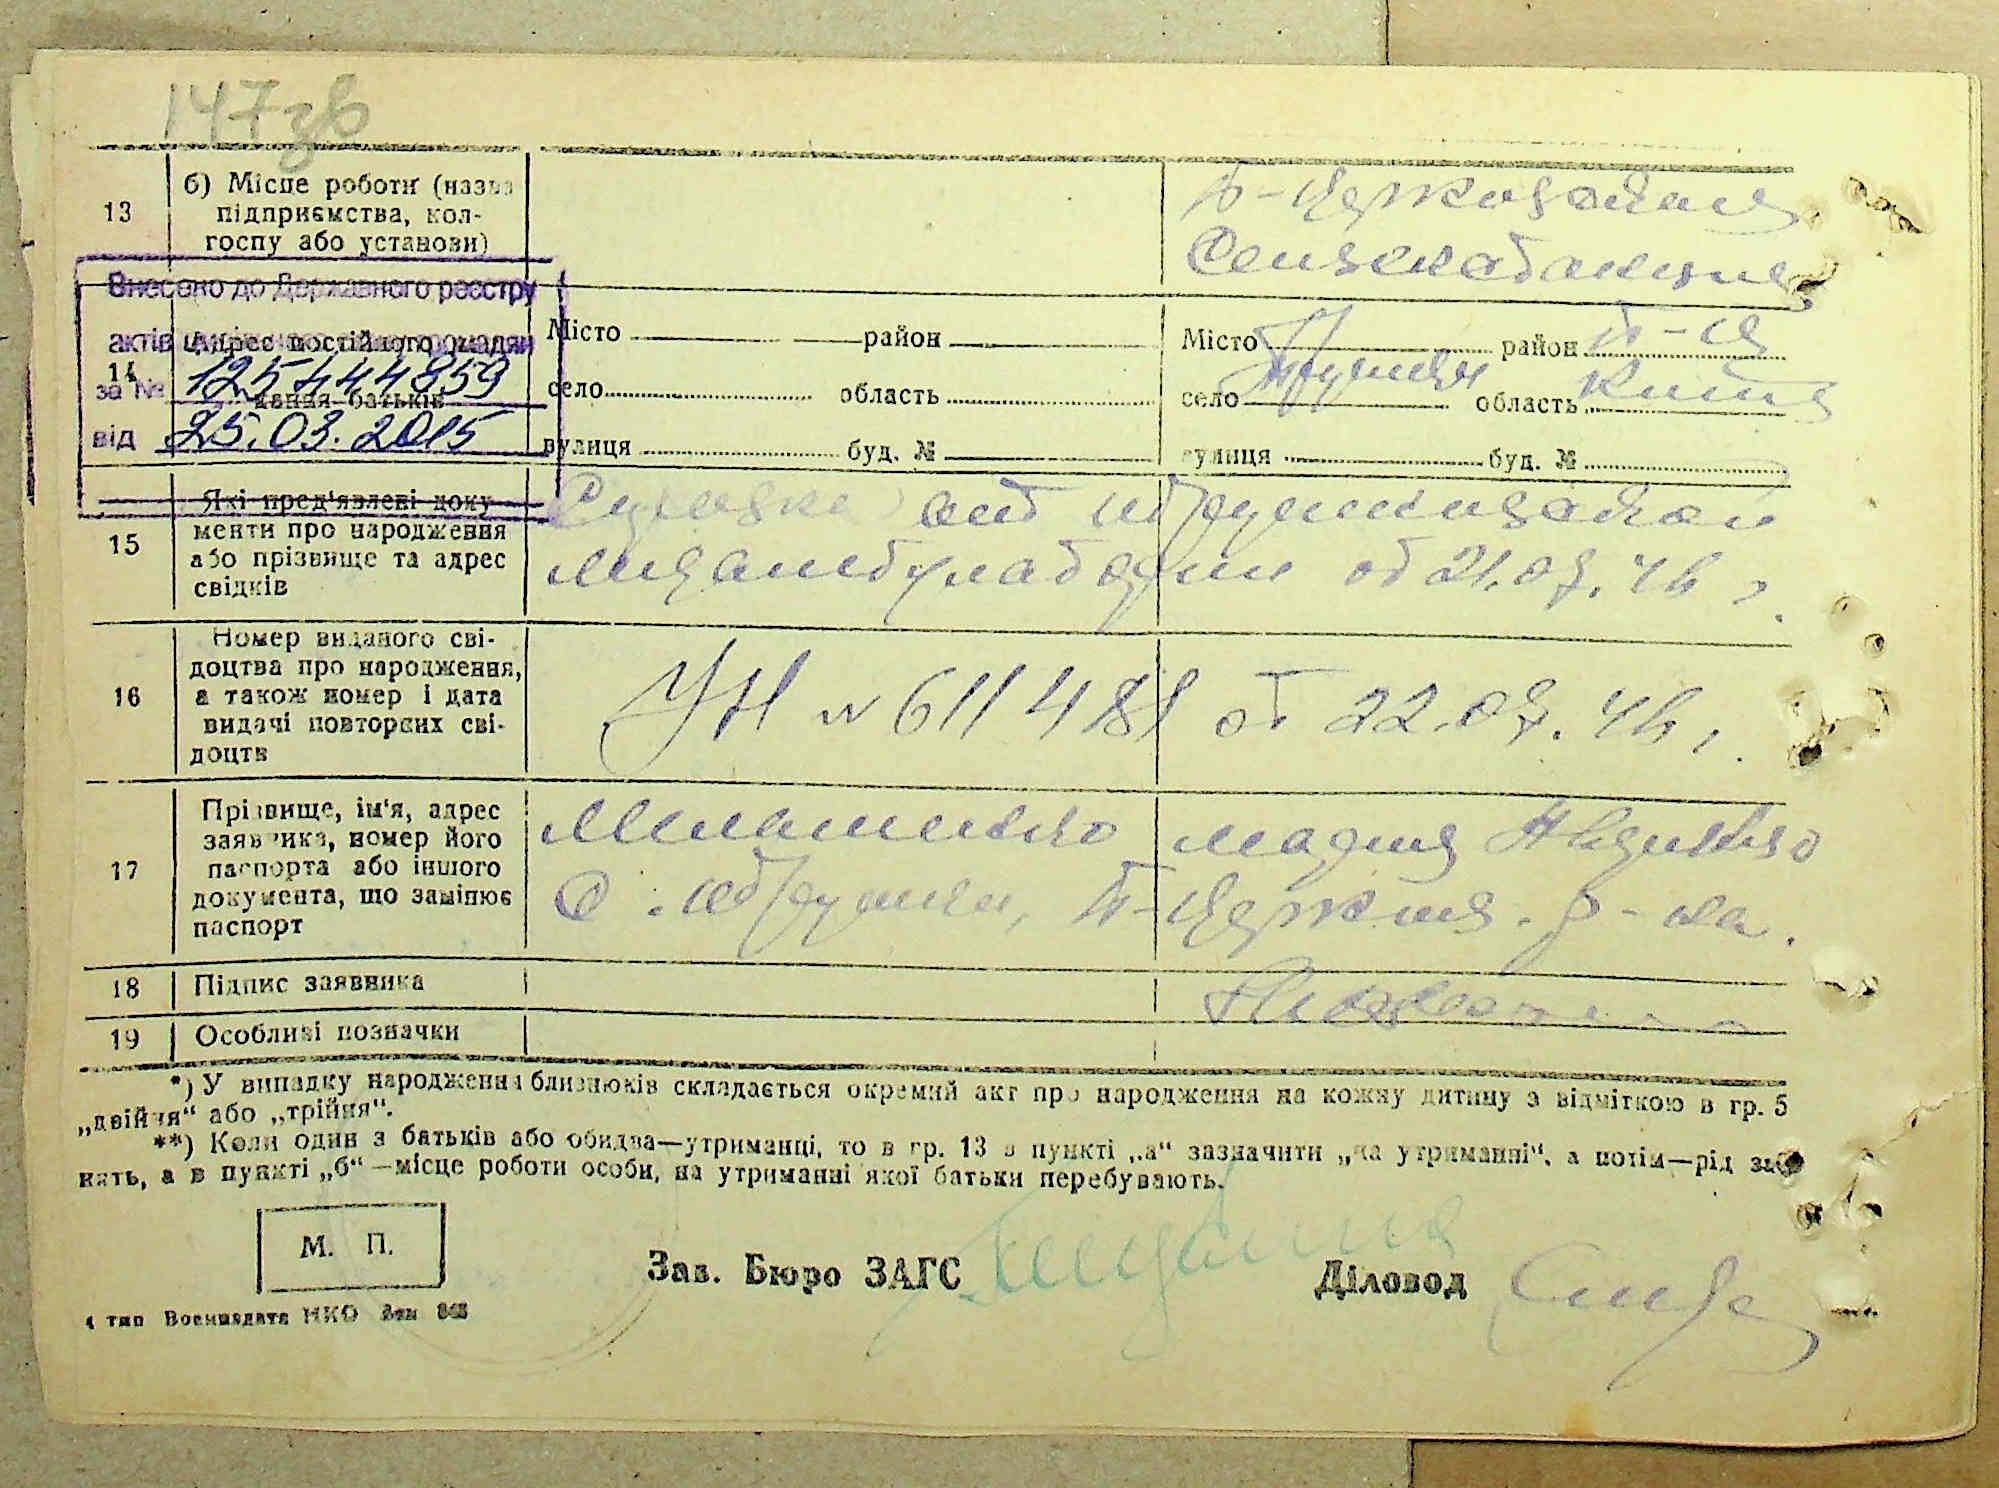 147зв
13
б) Місце роботи (назва
підприємства, кол-
госпу або установи)
Внесено до Державного реєстру
актів громадян
за № 125444859
від 25.03.2015
14
Адрес постійного
дання батьків
Місто район
село область
вулиця буд. №
Місто район Б-Ц
село область Київ
вулиця буд. №
15
Які пред'явлені доку
менти про народження
або прізвище та адрес
свідків
от 21.07.46 г.
16
Номер виданого сві-
доцтва про народження,
а також номер і дата
видачі повторних сві-
доцтв
УН № 611481 от 22.07.46 г.
17
Прізвище, ім'я, адрес
заявника, номер його
паспорта або іншого
документа, що замінює
паспорт
Мария
С. Б-Церков. р-на.
18
Підпис заявника
19
Особливі позначки
*) У випадку народження близнюків складається окремий акт про народження на кожну дитину з відміткою в гр. 5
„двійня“ або „трійня“.
**) Коли один з батьків або обидва—утриманці, то в гр. 13 в пункті „а“ зазначити „на утриманні“, а потім—рід за
нять, а в пункті „б“—місце роботи особи, на утриманні якої батьки перебувають.
М. П.
Зав. Бюро ЗАГС
Діловод
4 тип Воениздата НКО Зак 868